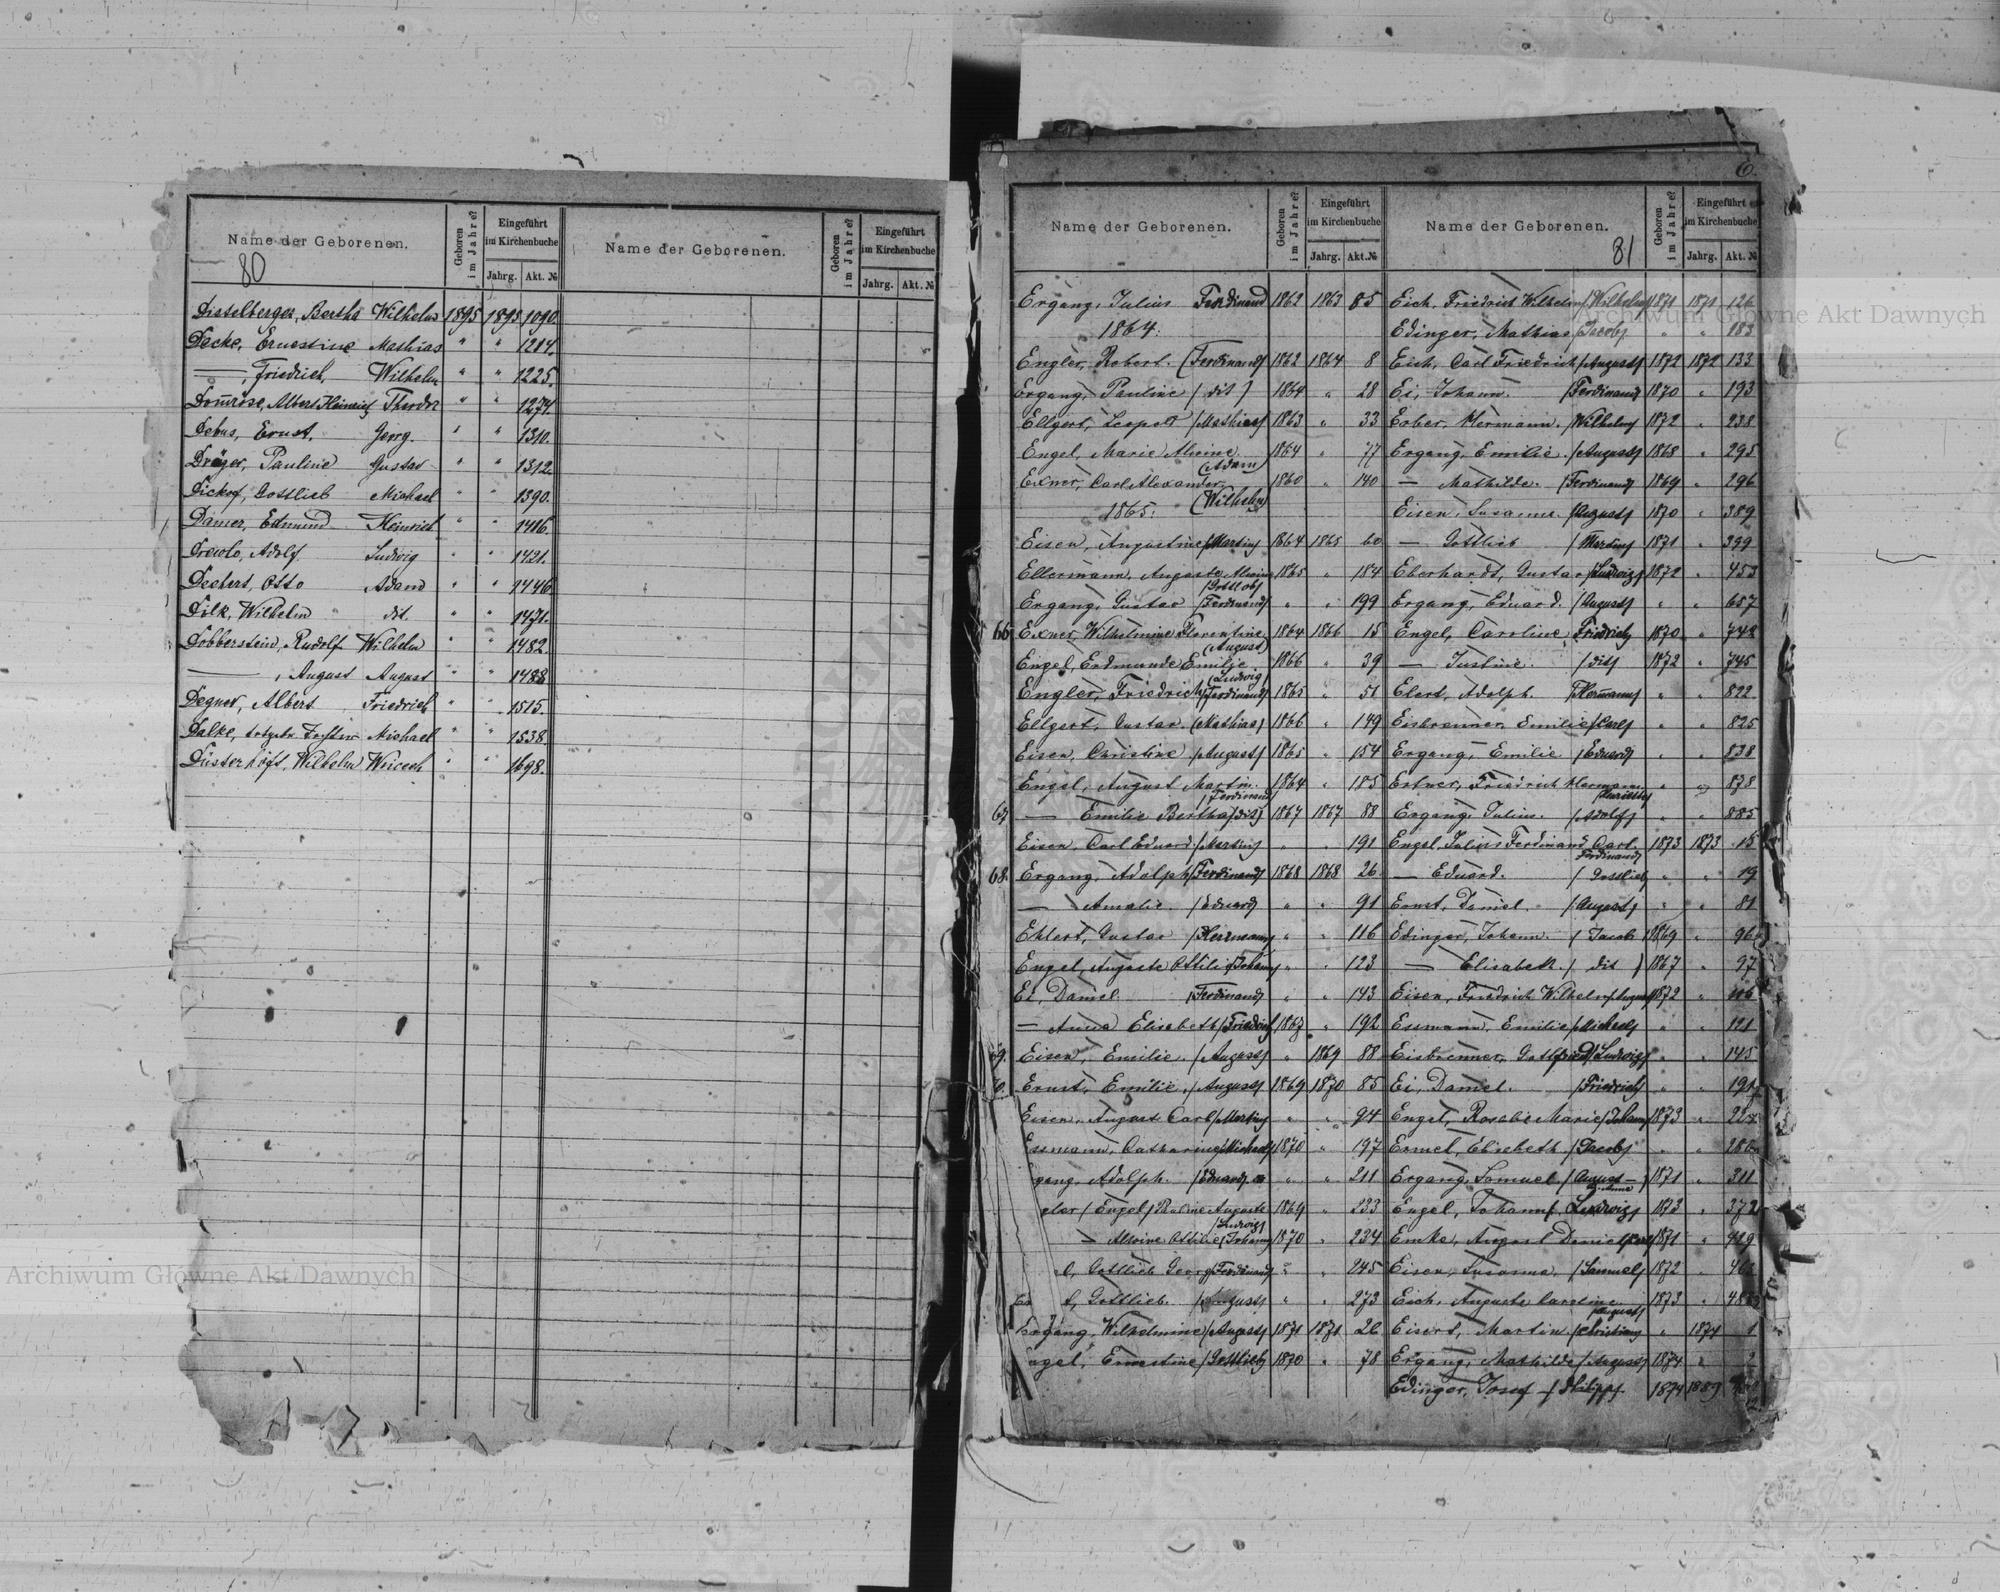 Name der Geborenen.
Geboren im Jahre?
Eingeführt im Kirchenbuche
Jahrg. Akt. №
Name der Geborenen.
Geboren im Jahre?
Eingeführt im Kirchenbuche
Jahrg. Akt. №
80
Disselberger, Bertha Wilhelm 1895 1895 1090.
Decke, Ernestine Mathias " " 1214.
—, Friedrich, Wilhelm " " 1225.
Domrose, Albert Heinrich Theodor " " 1274.
Debus, Ernst. Georg. " " 1310.
Dräger, Pauline Gustav " " 1312.
Gottlieb Michael " " 1390.
Damer, Edmund Heinrich " " 1416.
Adolf Ludwig " " 1421.
Dechert, Otto Adam " " 1446.
Dilk, Wilhelm dit. " " 1471.
Dobberstein, Rudolf Wilhelm " " 1482.
—, August August " " 1488
Degner, Albert Friedrich " " 1515.
Dalke, Michael " " 1538.
Düsterhöft, Wilhelm " " 1698.
Name der Geborenen.
Geboren im Jahre?
Eingeführt im Kirchenbuche
Jahrg. Akt. №
Name der Geborenen.
Geboren im Jahre?
Eingeführt im Kirchenbuche
Jahrg. Akt. №
81
Ergang, Julius Ferdinand 1862 1863 85
1864.
Engler, Robert. (Ferdinand) 1862 1864 8
Ergang, Pauline (dit) 1864 " 28
Ellgert, Leopold (Mathias) 1863 " 33
Engel, Marie Alwine (Adam) 1864 " 77
Exner, Carl Alexander (Wilhelm) 1860 " 140
1865.
Eisen, Augustine (Martin) 1864 1865 60
Ellermann, Auguste Alwine (Gottlob) 1865 " 184
Ergang, Gustav (Ferdinand) " " 199
66 Exner, Wilhelmine Florentine (August) 1864 1866 15
Engel, Erdmunde Emilie. (Ludwig) 1866 " 39
Engler, Friedrich (Ferdinand) 1865 " 51
Ellgert, Gustav. (Mathias) 1866 " 149
Eisen, Christine (August) 1865 " 154
Engel, August Martin. (Ferdinand) 1864 " 185
67 — Emilie Bertha (dit) 1867 1867 88
Eisen, Carl Eduard (Martin) " " 191
68. Ergang, Adolph (Ferdinand) 1868 1868 26
— Amalie. (Eduard) " " 91
Ehlert, Gustav (Herrmann) " " 116
Engel, Auguste Ottilie (Johann) " " 123
Ei, Daniel (Ferdinand) " " 143
— Anna Elisabeth (Friedrich) 1867 " 192
69. Eisen, Emilie. (August) " 1869 88
Ernst, Emilie. (August) 1869 1870 85
Eisen, August Carl (Martin) " " 94
Essmann, Catharine (Michael) 1870 " 197
gang, Adolph. (Eduard) " " 211
gler (Engel) Pauline Auguste (Ludwig) 1869 " 233
— Alwine Ottilie (Johann) 1870 " 234
l, Gottlieb Georg (Ferdinand) " " 245
l, Gottlieb. (August) " " 273
Ergang, Wilhelmine (August) 1871 1871 26
ngel, Ernestine (Gottlieb) 1870 " 78
Eich, Friedrich Wilhelm (Wilhelm) 1871 1871 126
Edinger, Mathias (Jacob) " " 183
Eich, Carl Friedrich (August) 1872 1872 133
Ei, Johann. (Ferdinand) 1870 " 193
Erber, Hermann. (Wilhelm) 1872 " 238
Ergang, Emilie. (August) 1868 " 295
— Mathilde. (Ferdinand) 1869 " 296
Eisen, Susanna. (August) 1870 " 389
— Gottlieb (Martin) 1871 " 399
Eberhardt, Gustav (Ludwig) 1872 " 453
Ergang, Eduard. (August) " " 657
Engel, Caroline (Friedrich) 1870 " 742
— Justine. (dit) 1872 " 745
Elert, Adolph (Hermann) " " 822
Eisbrenner, Emilie (Carl) " " 825
Ergang, Emilie (Eduard) " " 838
Friedrich Hermann " " 878
Ergang, Julius. (Adolf) " " 885
Engel, Julius Ferdinand Carl (Ferdinand) 1873 1873 15
— Eduard. (Gottlieb) " " 19
Ernst, Daniel. (August) " " 81
Edinger, Johann. (Jacob) 1869 " 96
— Elisabeth. (dit) 1867 " 97
Eisen, Friedrich Wilhelm (August) 1872 " 116
Essmann, Emilie (Michael) " " 121
Eisbrenner, Gottfried (Ludwig) " " 145
Ei, Daniel. (Friedrich) " " 191
Engel, Rosalie Marie (Johann) 1873 "
Ermel, Elisabeth (Jacob) " "
Ergang, Samuel (August) 1871 " 311
Engel, Johann (Ludwig) 1873 " 372
Emke, August Daniel 1871 " 429
Eisen, Susanna. (Samuel) 1872 "
Eich, Auguste Caroline (August) 1873 "
Eisert, Martin (Christian) " 1874 1
Ergang, Mathilde (August) 1874 " 2
Edinger, Josef (Philipp) 1874 1889
Archiwum Główne Akt Dawnych
Archiwum Główne Akt Dawnych